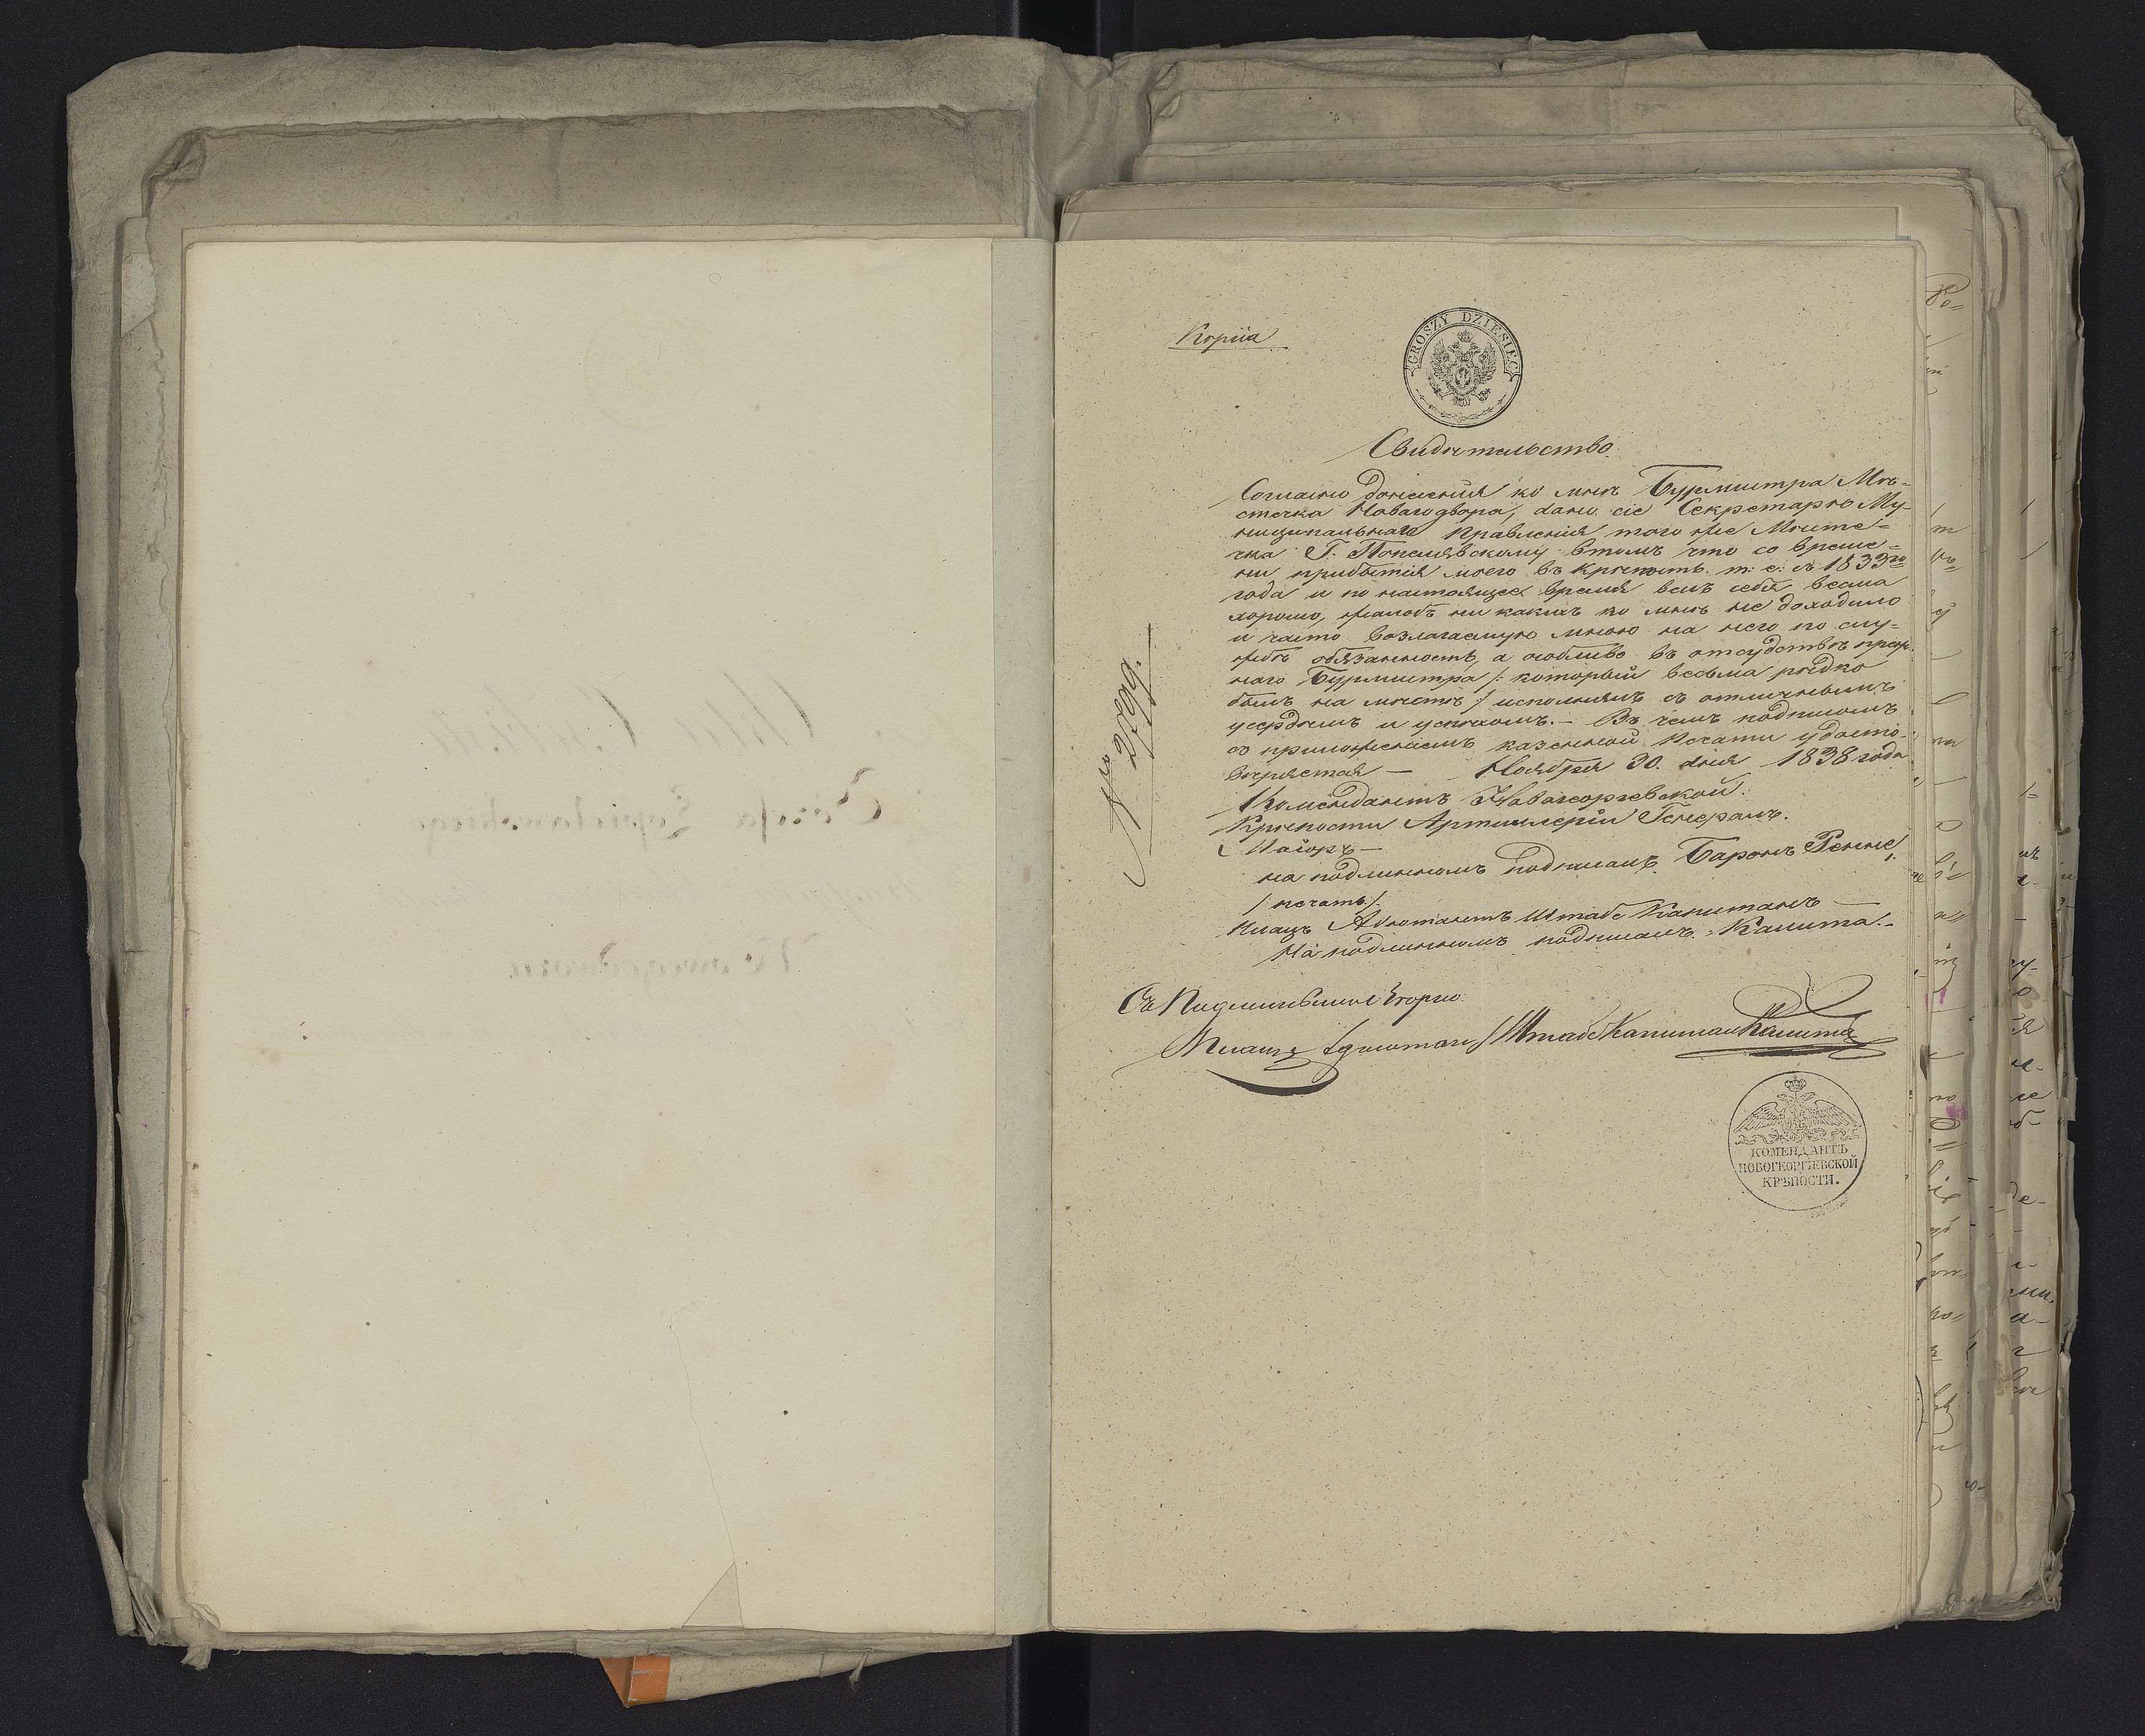 Копiя
GROSZY DZIESIĘĆ
Свидѣтельство.
Согласно донесенiя ко мнѣ Бурмистра Мѣ-
стечка Новагодвора, дано сiе Секретарю Му-
ниципальнаго Правленiя того же Мѣсте-
чка Г. втомъ что со време-
ни прибытiя моего въ Крѣпость т: е: съ 1833го
года и по настоящее время велъ себя весма
хорошо, жалобъ ни какихъ ко мнѣ не доходило
и часто возлагаемую мною на него по слу-
жбѣ обязанность, а особливо въ отсудствѣ
наго Бурмистра /: который весьма рѣдко
былъ на мѣстѣ :/ исполнялъ съ отличнымъ
усердiемъ и успѣхомъ. — Въ чемъ подписомъ
съ приложенiемъ казенной печати удосто-
вѣряется — Ноября 30. дня 1838 года
Комендантъ Новагеоргiевской
Крѣпости Артиллерiи Генералъ.
Маiоръ —
на подлинномъ подписалъ. Баронъ Ренне
/: печать :/
Плацъ Адютантъ Штабс Капитанъ —
На подлинномъ подписалъ. Калита. -
№ 2799.
Съ Подлиннымъ
Плацъ Адютантъ Штабс Капитанъ Калита
КОМЕНДАНТЪ
НОВОГЕОРГIЕВСКОЙ
КРѢПОСТИ.